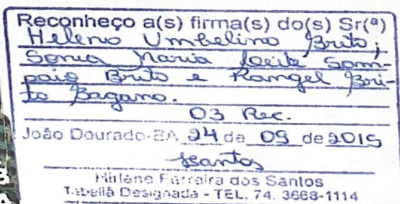 Reconheço a(s) firma(s) do(s) Sr(ª)
Heleno Umbelino Brito,
Sonia Maria Leite Sam-
paio Brito e Rangel Bri-
to Bagano.
03 Rec.
João Dourado-BA 24 de 09 de 2015
Santos
Hirlene Ferreira dos Santos
Tabeliã Designada - TEL. 74. 3668-1114